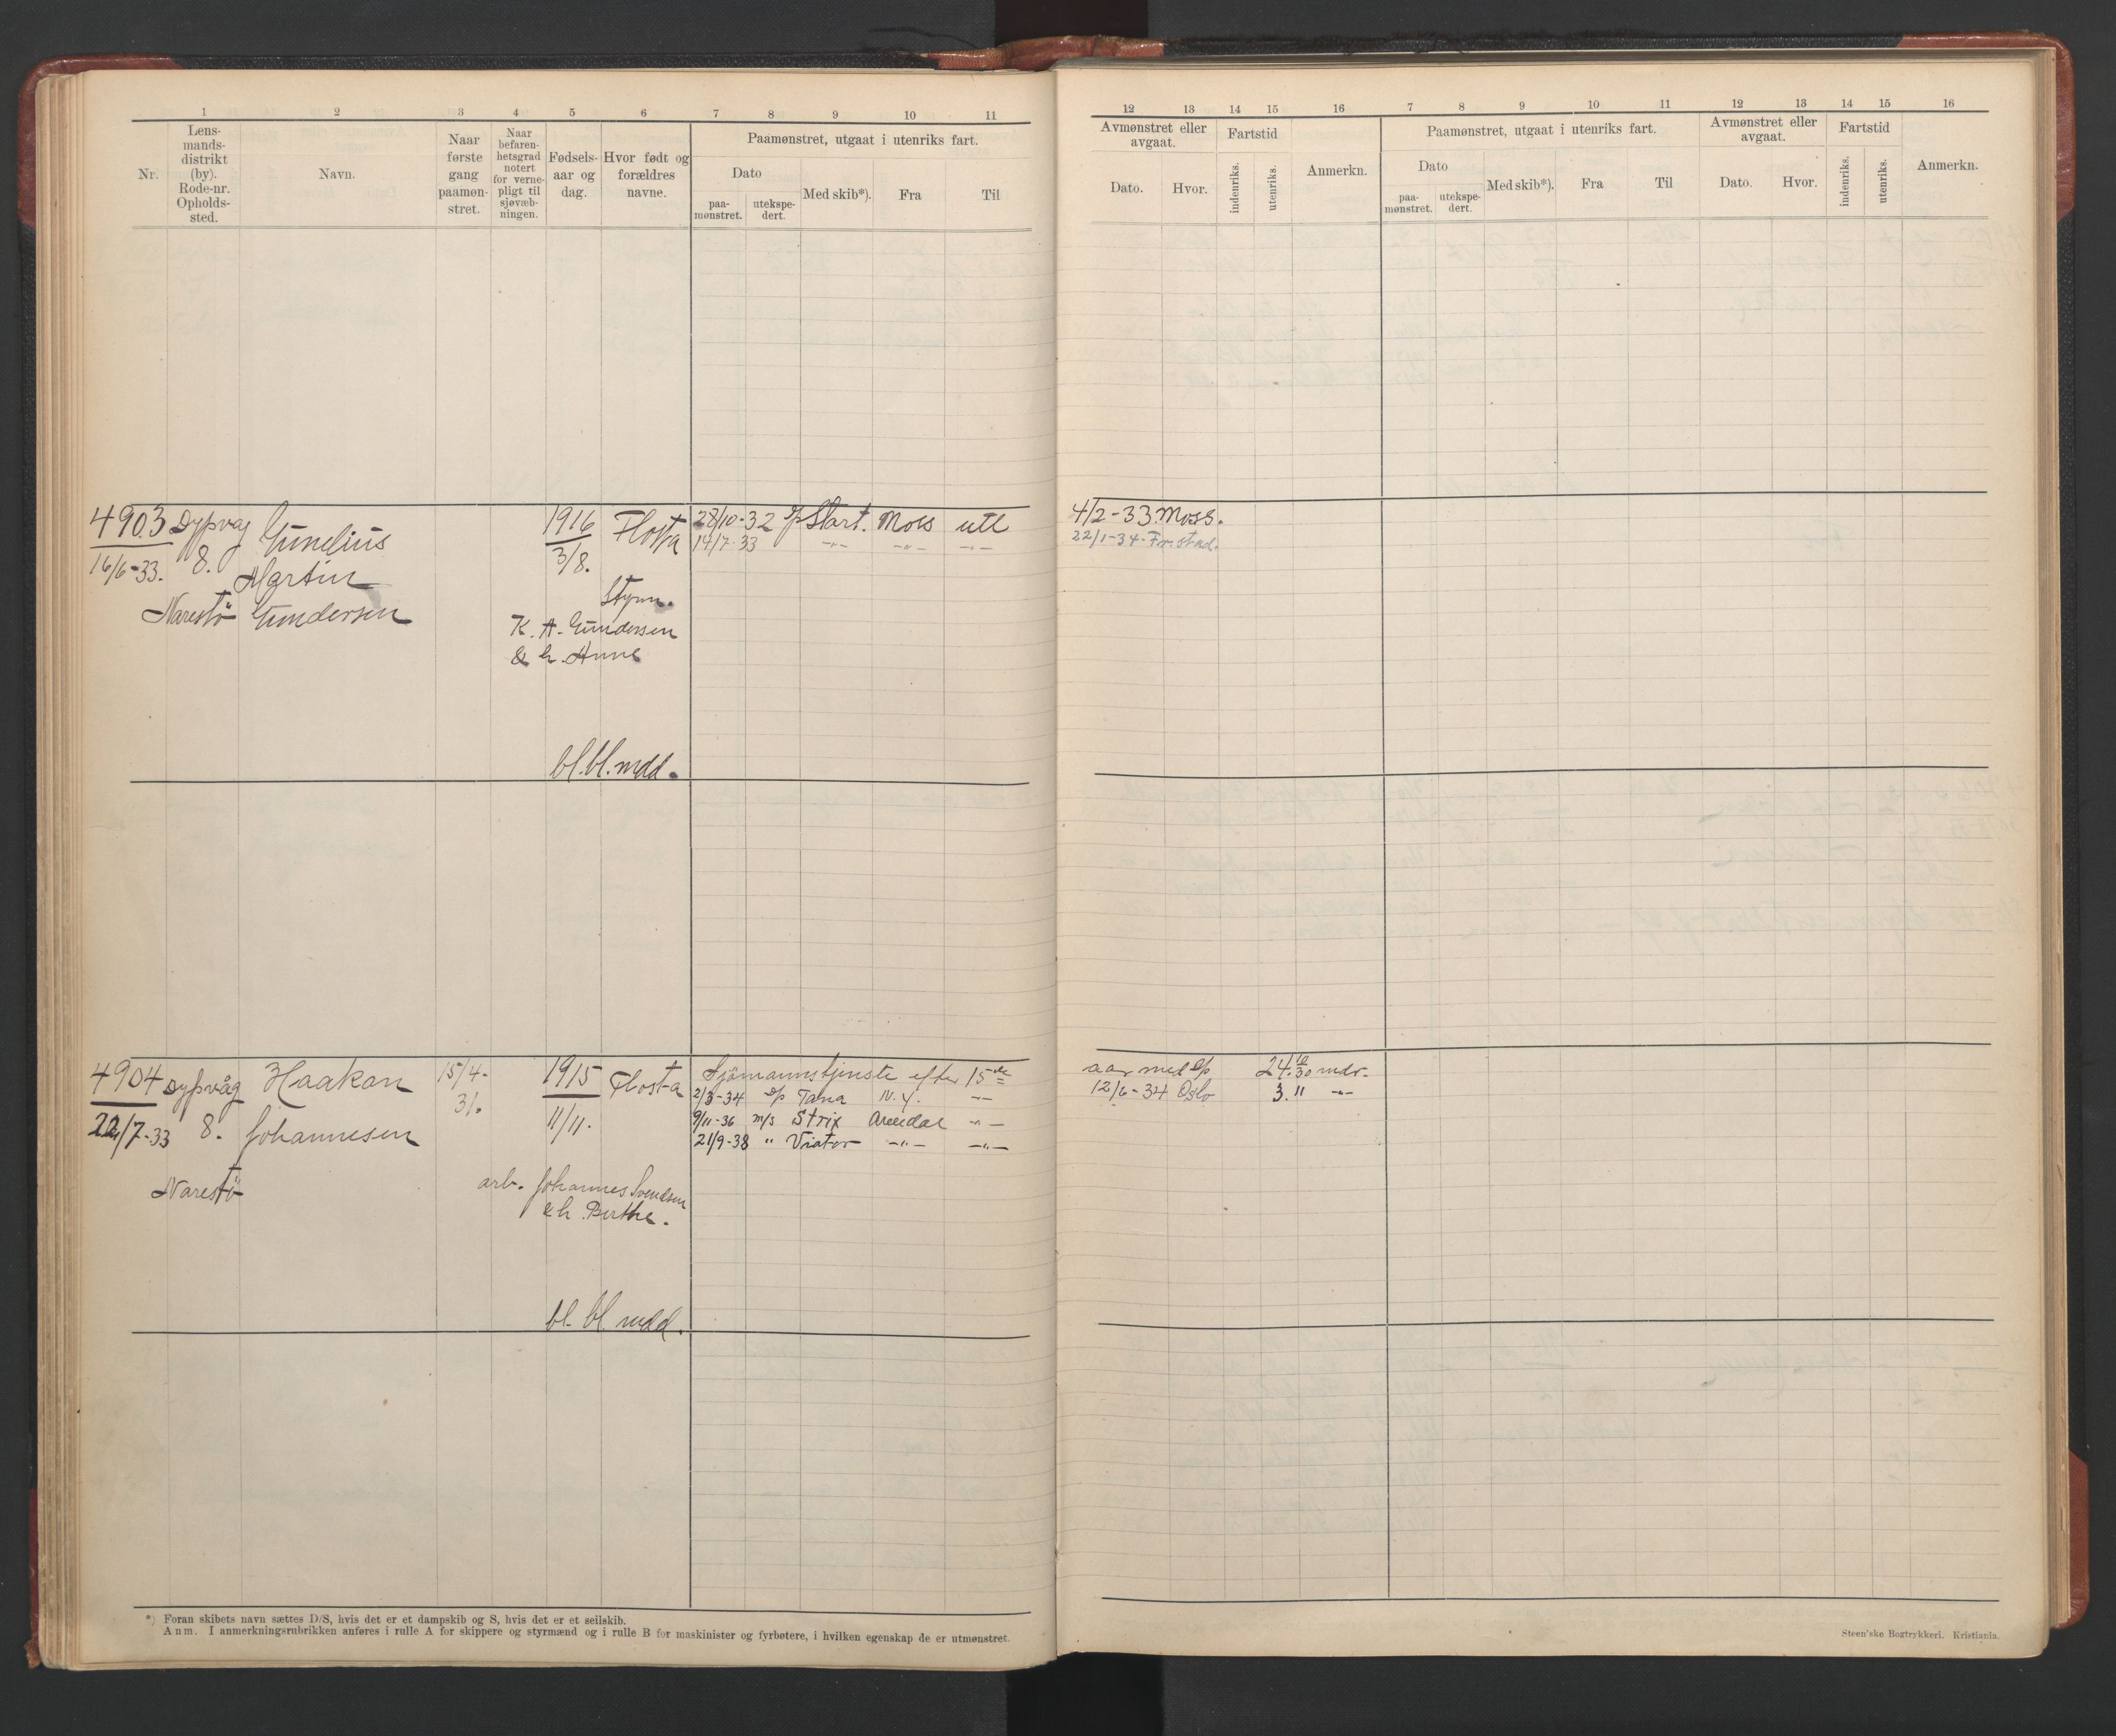 1 2 3 4 5 6 7 8 9 10 11
Nr.
Lens-
mands-
distrikt
(by).
Rode-nr.
Opholds-
sted.
Navn.
Naar
første
gang
paamøn-
stret.
Naar
befaren-
hetsgrad
notert
for verne-
pligt til
sjøvæb-
ningen.
Fødsels-
aar og
dag.
Hvor født og
forældres
navne.
Paamønstret, utgaat i utenriks fart.
Dato
paa-
mønstret.
utekspe-
dert.
Med skib*).
Fra
Til
4903 Dypvåg Gunelius 1916 Flosta 28/10-32 D/S Start. Moss utl
16/6-33. 8. Martin 3/8. 14/7-33 -"- -"- -"-
Narestö Gundersen Styrm.
K. A. Gundersen
& h. Anne
bl. bl. mdd.
4904 Dypvåg Haakon 15/4- 1915 Flosta Sjömannstjeneste efter 15 de
31. 2/3-34 D/S Tana N.Y. -"-
22/7-33 8. Johannesen 11/11. 9/11-36 m/s Strix Arendal -"-
21/9-38 " Viator -"- -"-
Narestö arb. Johannes Svendsen
& h. Berthe.
bl. bl. mdd.
*) Foran skibets navn sættes D/S, hvis det er et dampskib og S, hvis det er et seilskib.
Anm. I anmerkningsrubrikken anføres i rulle A for skippere og styrmænd og i rulle B for maskinister og fyrbøtere, i hvilken egenskap de er utmønstret.
12 13 14 15 16 7 8 9 10 11 12 13 14 15 16
Avmønstret eller
avgaat.
Dato.
Hvor.
Fartstid
indenriks.
utenriks.
Anmerkn.
Paamønstret, utgaat i utenriks fart.
Dato
paa-
mønstret.
utekspe-
dert.
Med skib*).
Fra
Til
Avmønstret eller
avgaat.
Dato.
Hvor.
Fartstid
indenriks.
utenriks.
Anmerkn.
4/2-33 Moss.
22/1-34. Fr.stad.
aar med D/S 24. 10/30 mdr.
12/6-34 Oslo 3. " -"-
Steen'ske Bogtrykkeri. Kristiania.